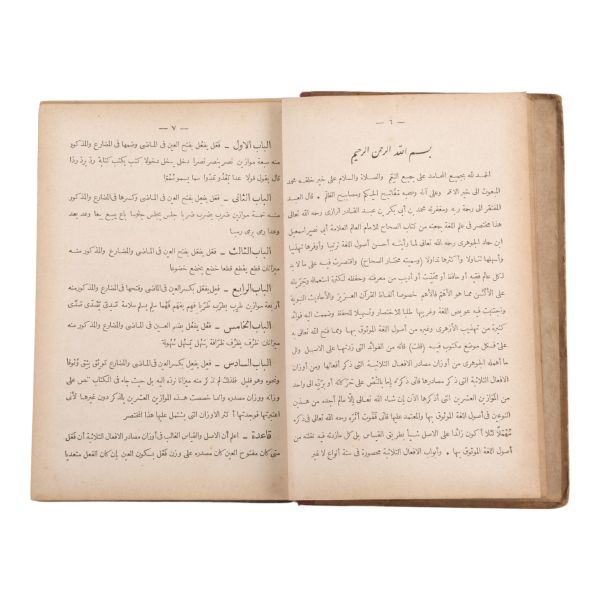 — ٦ —
بسم الله الرحمن الرحيم
الحمد لله بجميع المحامد على جميع النعم والصلاة والسلام على خير خلقه محمد
المبعوث الى خير الامم وعلى آله وصحبه مفاتيح الحكم ومصابيح الظلم • قال العبد
المفتقر الى رحمة ربه ومغفرته محمد بن أبي بكر بن عبد القادر الرازي رحمه الله تعالى
هذا مختصر في علم اللغة جمعته من كتاب الصحاح للامام العالم العلامة أبي نصر اسمعيل
ابن حماد الجوهري رحمه الله تعالى لما رأيته أحسن أصول اللغة ترتيبا وأوفرها تهذيبا
وأسهلها تناولا وأكثرها تداولا (وسميته مختار الصحاح) واقتصرت فيه على ما لا بد
لكل عالم فقيه أو حافظ أو محدّث أو أديب من معرفته وحفظه لكثرة استعماله وجَرَيانه
على الألسُن مما هو الأهم فالأهم خصوصا ألفاظ القرآن العزيز والأحاديث النبوية
واجتنبت فيه عويص اللغة وغريبها طلبا للاختصار وتسهيلا للحفظ وضممت اليه فوائد
كثيرة من تهذيب الأزهري وغيره من أصول اللغة الموثوق بها ومما فتح الله تعالى به
عليّ فكل موضع مكتوب فيه (قلت) فانه من الفوائد التي زدتها على الاصل وكل
ما أهمله الجوهري من أوزان مصادر الافعال الثلاثية التي ذكر أفعالها ومن أوزان
الافعال الثلاثية التي ذكر مصادرها فاني ذكرته إما بالنَّصّ على حَرَكاته أو بردّه الى واحد
من الموازين العشرين التي أذكرها الآن إن شاء الله تعالى إلّا مالم أجده من هذين
النوعين في أصول اللغة الموثوق بها والمعتمد عليها فاني قَفَوتُ أثَرَه رحمه الله تعالى في ذكره
مُهْمَلًا لئلا أكون زائدا على الاصل شيأ بطريق القياس بل كل ما زدته فيه نقلته من
أصول اللغة الموثوق بها • وأبواب الافعال الثلاثية محصورة في ستة أنواع لا غير
— ٧ —
الباب الاول – فَعَل يفعُل بفتح العين في الماضي وضمها في المضارع والمذكور
منه سبعة موازين نصر ينصر نصرا دخل يدخل دخولا كتب يكتب كتابة ردّ يردّ ردّا
قال يقول قولا عدا يعدو عَدْوا سما يسمو سُمُوًّا
الباب الثاني – فَعَل يفعِل بفتح العين في الماضي وكسرها في المضارع والمذكور
منه خمسة موازين ضرب يضرب ضربا جلس يجلس جلوسا باع يبيع بيعا وعد يعد
وعدا رمى يرمي رميا
الباب الثالث – فَعَل يفعَل بفتح العين في الماضي والمضارع والمذكور منه
ميزانان قطع يقطع قطعا خضع يخضع خضوعا
الباب الرابع – فَعِل يفعَل بكسر العين في الماضي وفتحها في المضارع والمذكور منه
أربعة موازين طرِب يطرَب طَرَبا فهِم يفهَم فَهْما سلِم يسلَم سلامة صَدِيَ يَصْدَى صَدًى
الباب الخامس – فَعُل يفعُل بضم العين في الماضي والمضارع والمذكور منه
ميزانان ظَرُف يظرُف ظَرافة سَهُل يسهُل سُهولة
الباب السادس – فَعِل يفعِل بكسر العين في الماضي والمضارع كوثِق يثِق وُثوقا
ونحوه وهو قليل فلذلك لم نذكر منه ميزانا نردّه اليه بل حيث جاء في الكتاب ننص على
وزانه ووزان مصدره وانما خصصت هذه الموازين العشرين بالذكر دون غيرها لأني
اعتبرتها فوجدتها أكثر الاوزان التي يشتمل عليها هذا المختصر
قاعدة – اعلم أن الاصل والقياس الغالب في أوزان مصادر الافعال الثلاثية أن فَعَل
متى كان مفتوح العين كان مصدره على وزن فَعْل بسكون العين ان كان الفعل متعديا